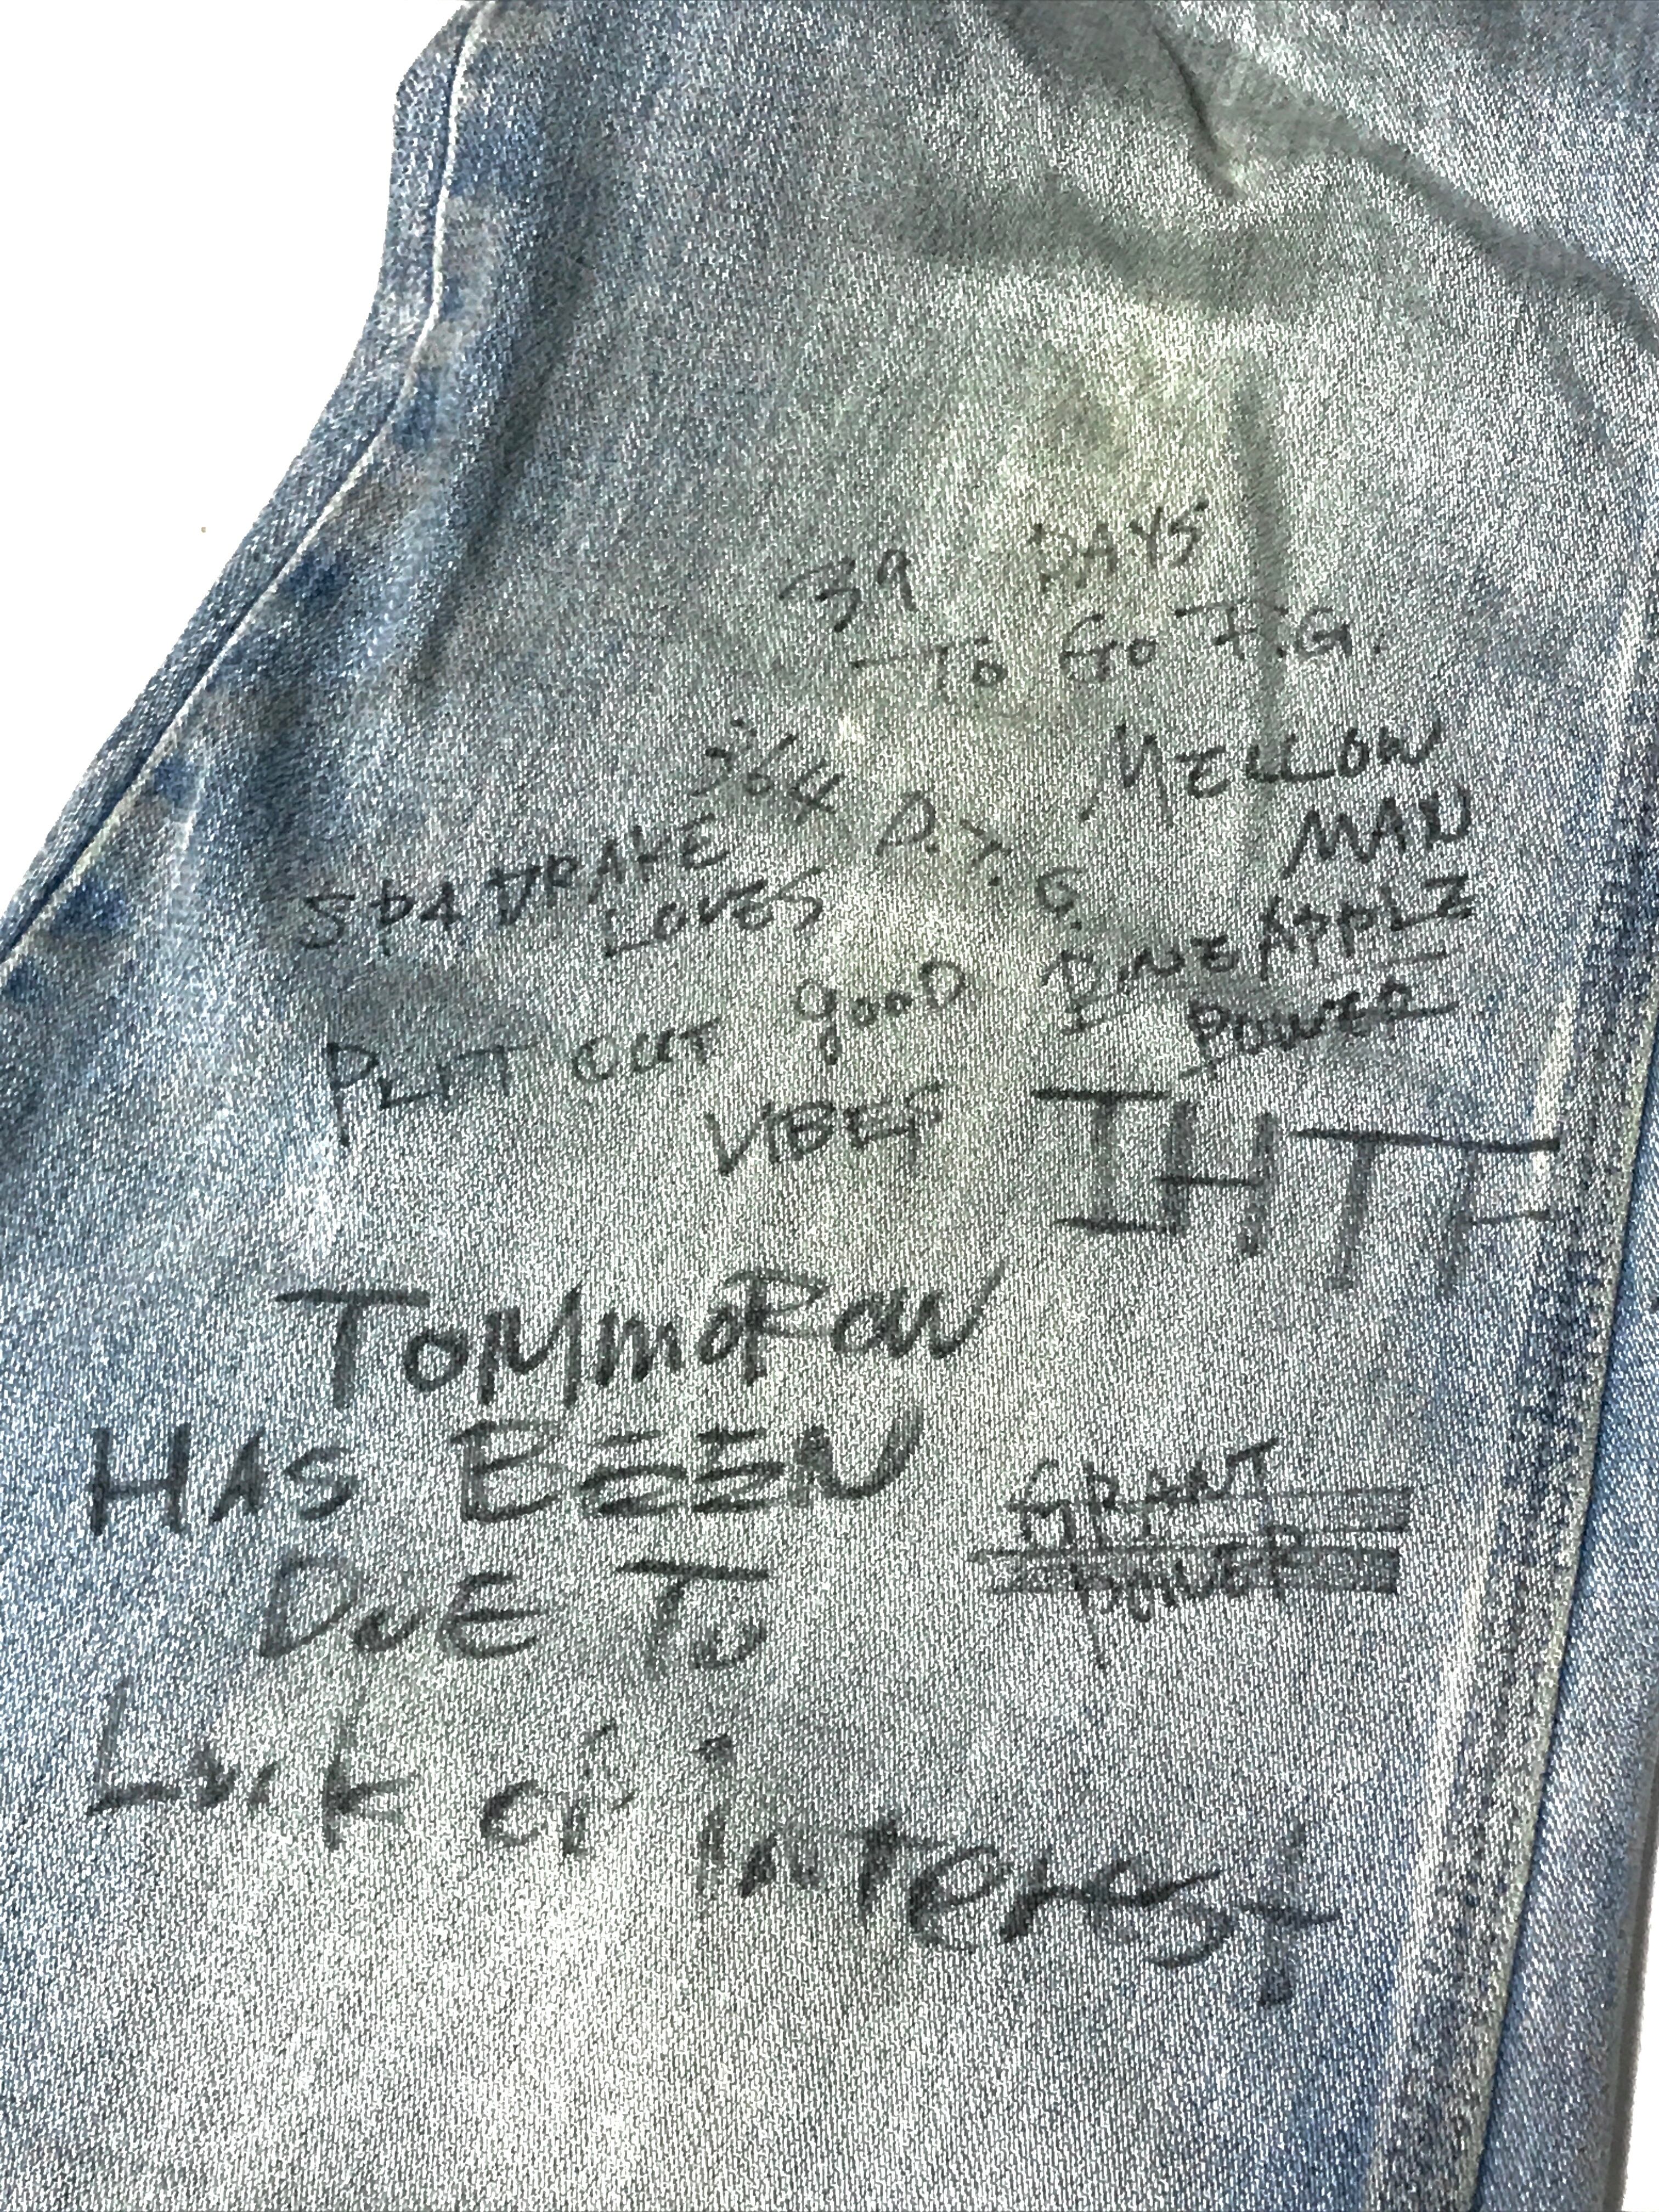 39 DAYS
To Go F.G.
364 D.T.G.
MELLOW
MAN
SPADRAKE
LOVES
PINEAPPLE
POWER
PUT OUT gooD
VIBES
IHTF
TOMMOROW
HAS BEEN
DuE To
Lack of interest
GRANT
POWER